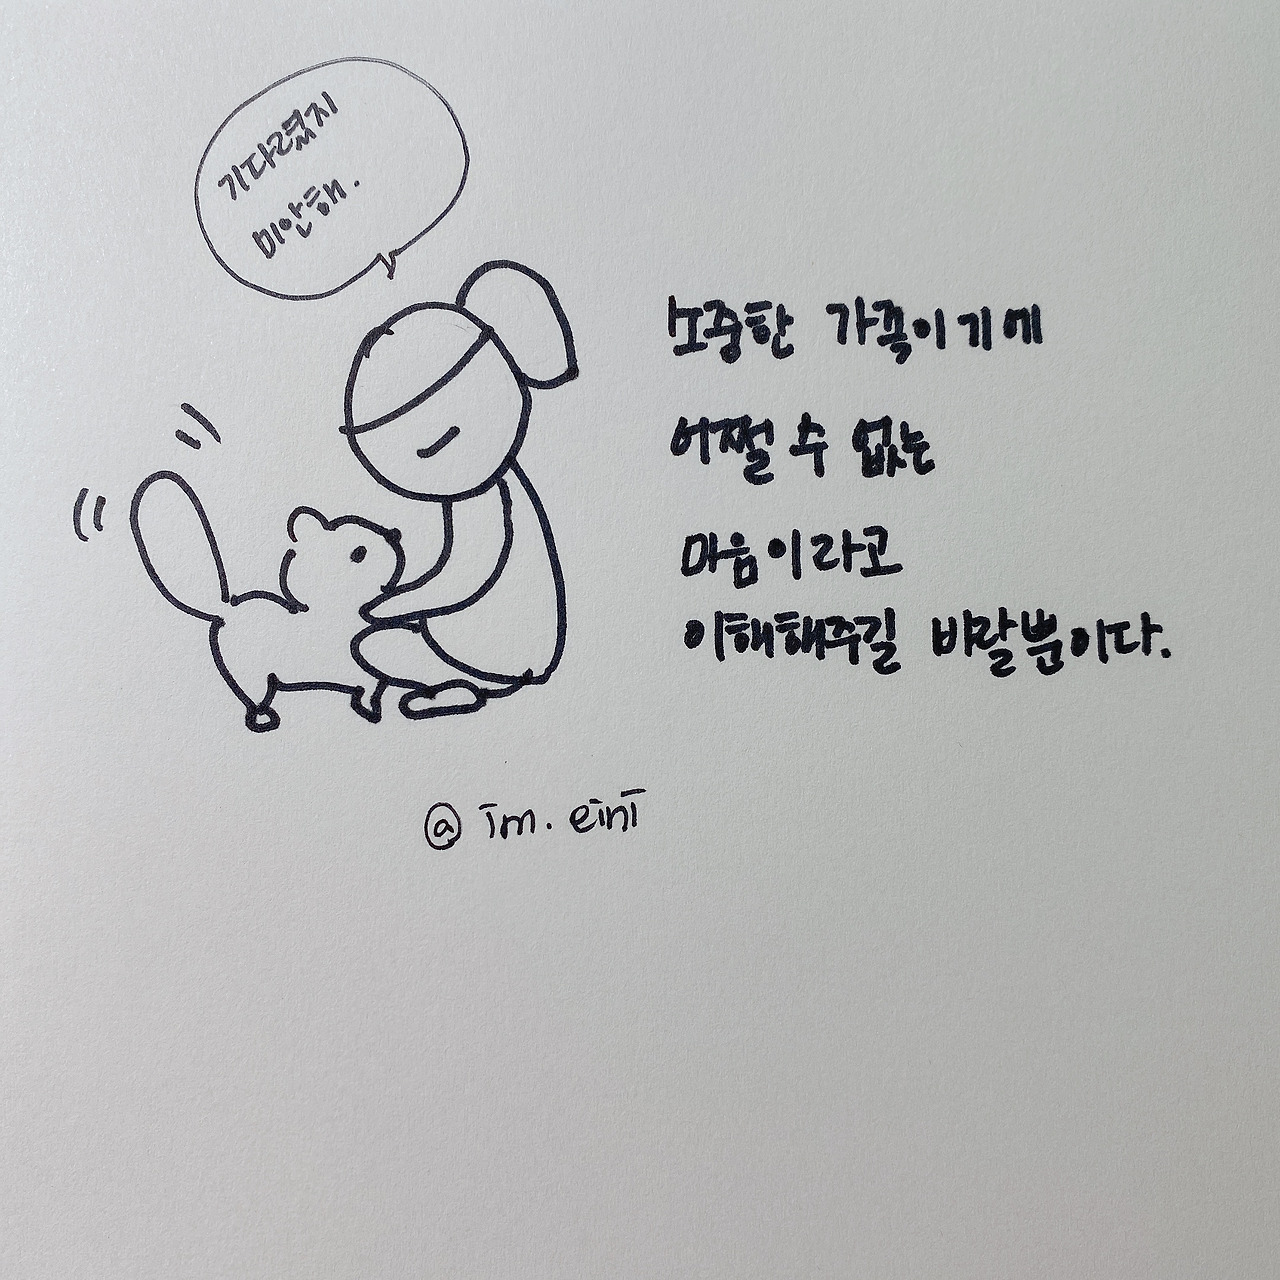 기다렸지
미안해.
소중한 가족이기에
어쩔 수 없는
마음이라고
이해해주길 바랄뿐이다.
@ im. eini